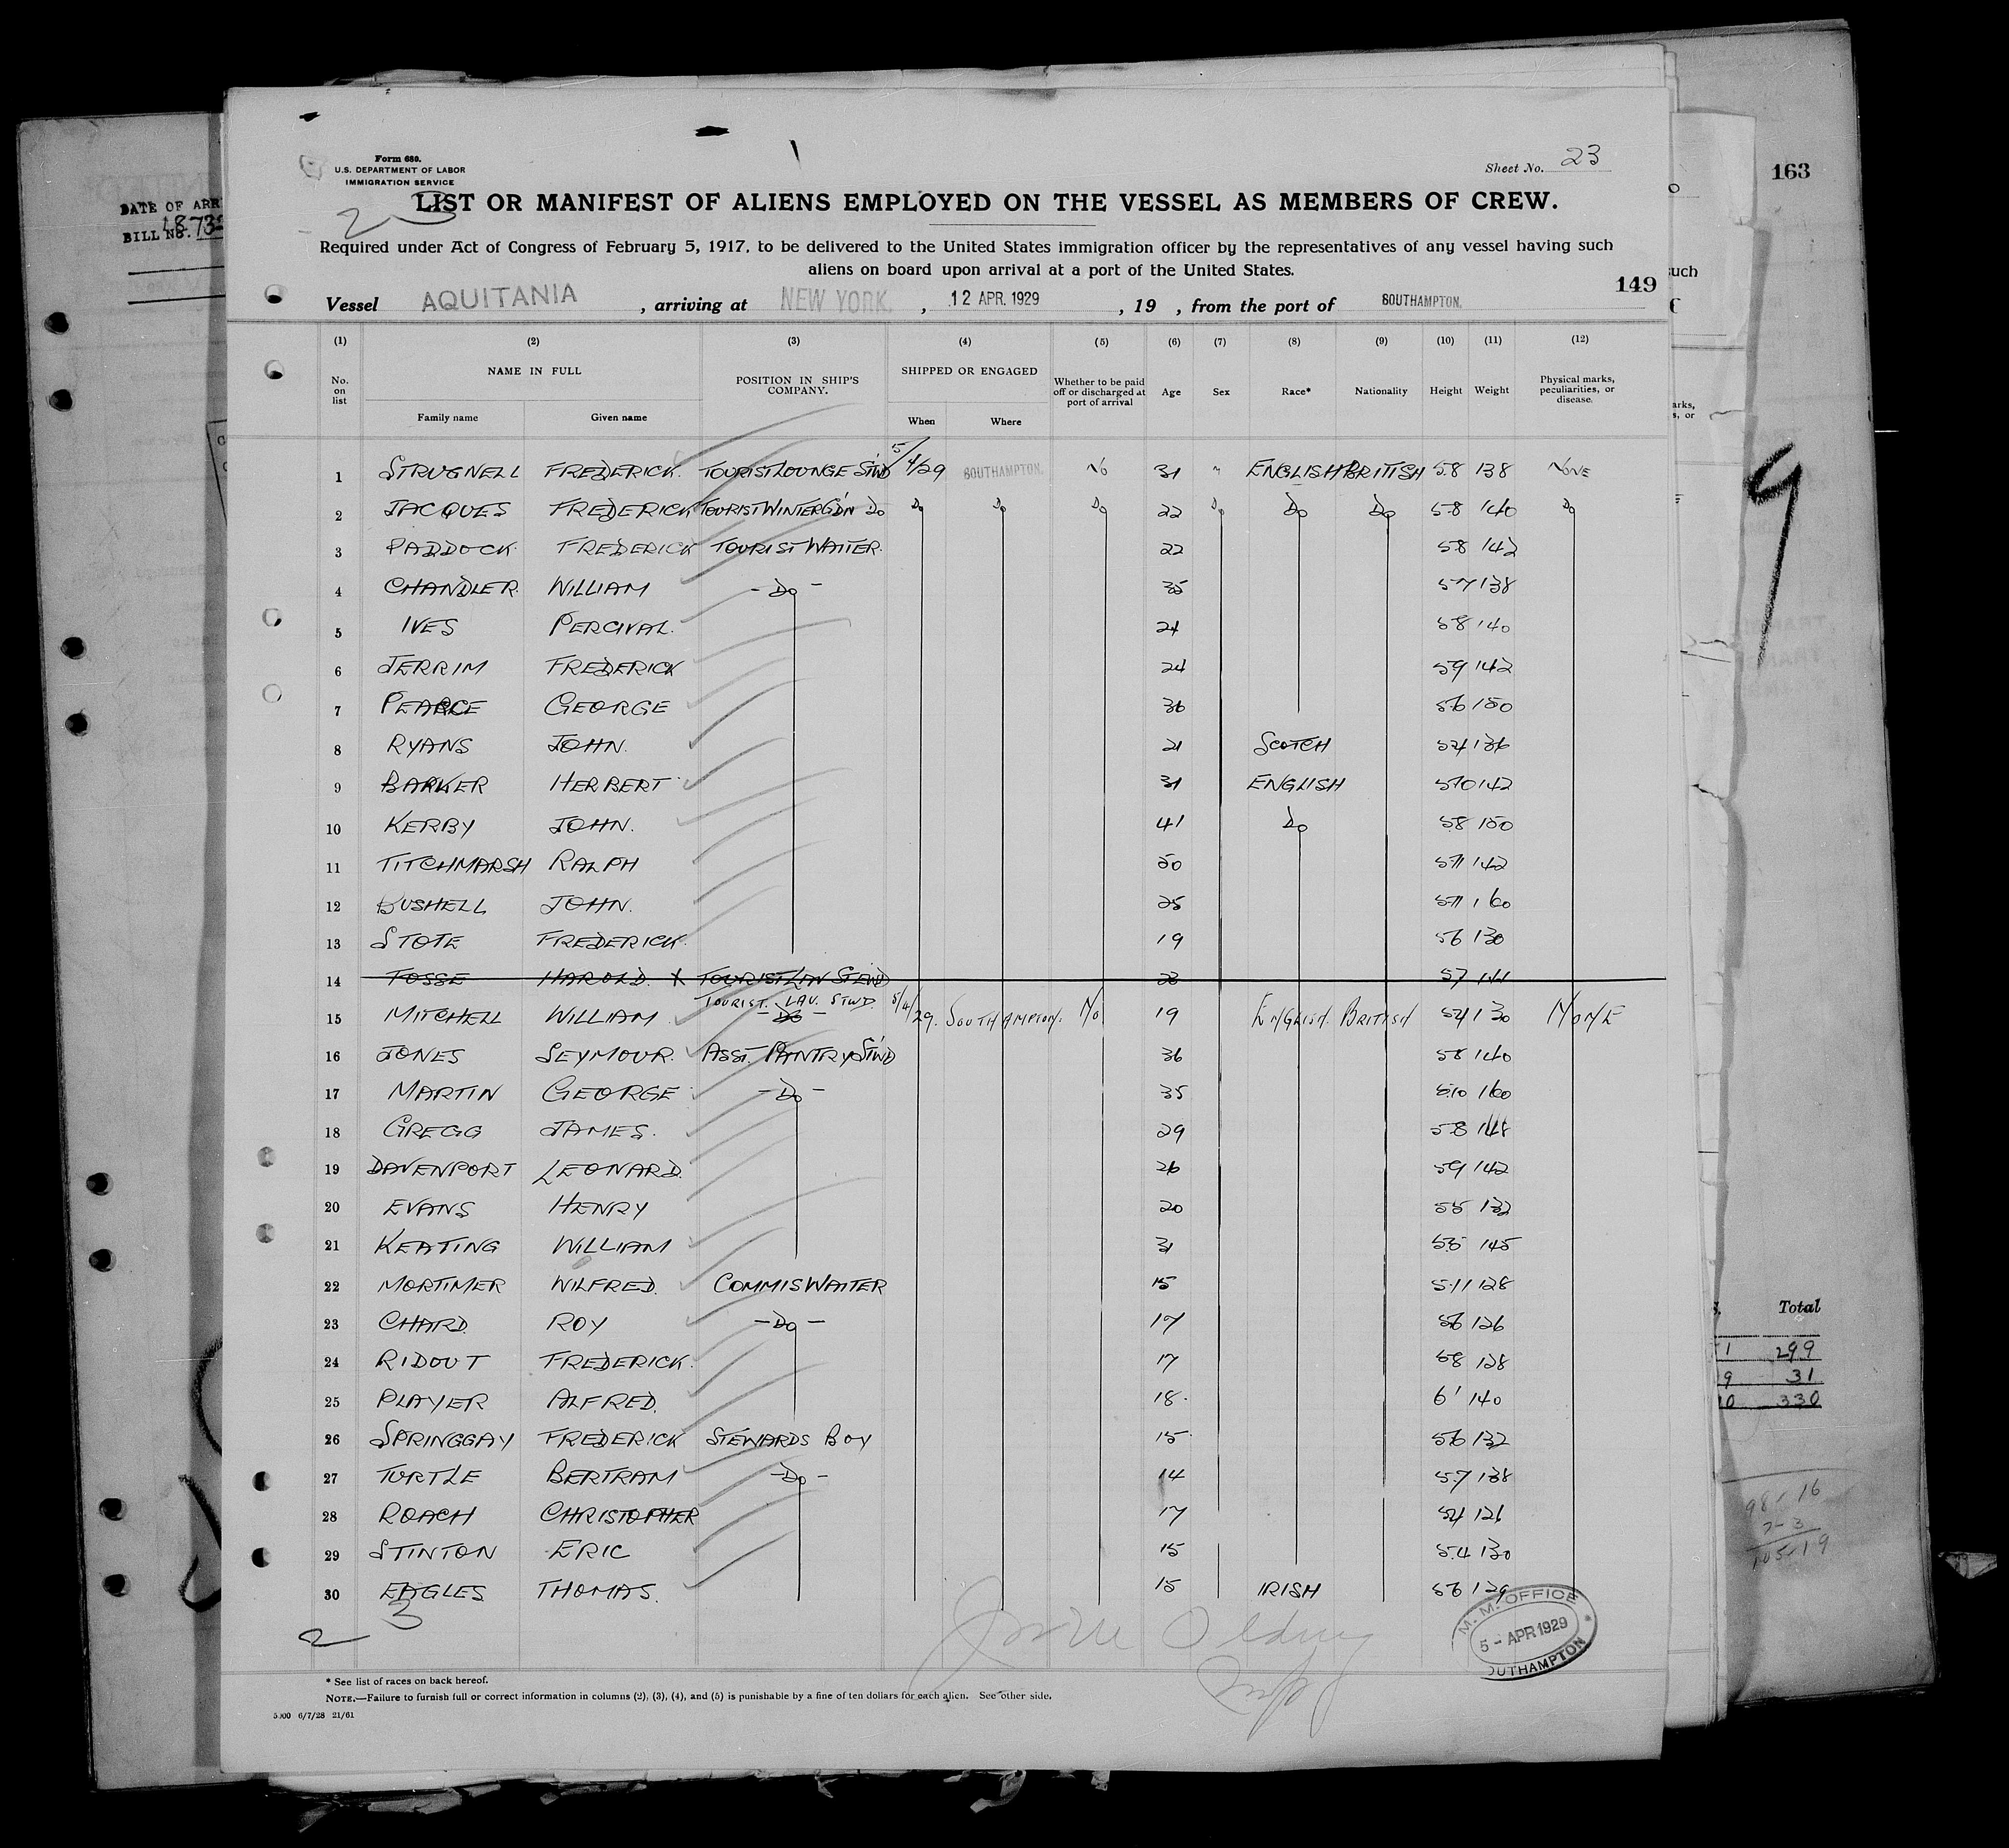 163
DATE OF ARR
BILL NO. 18732
Form 680.
U.S. DEPARTMENT OF LABOR
IMMIGRATION SERVICE
Sheet No. 23
23
LIST OR MANIFEST OF ALIENS EMPLOYED ON THE VESSEL AS MEMBERS OF CREW.
Required under Act of Congress of February 5, 1917, to be delivered to the United States immigration officer by the representatives of any vessel having such
aliens on board upon arrival at a port of the United States.
such
149
Vessel AQUITANIA , arriving at NEW YORK. , 12 APR. 1929 , 19 , from the port of SOUTHAMPTON.
(1) (2) (3) (4) (5) (6) (7) (8) (9) (10) (11) (12)
No. on list NAME IN FULL Family name Given name POSITION IN SHIP'S COMPANY. SHIPPED OR ENGAGED When Where Whether to be paid off or discharged at port of arrival Age Sex Race* Nationality Height Weight Physical marks, peculiarities, or disease.
arks,
s, or
1 STRUGNELL FREDERICK. TOURIST LOUNGE STWD 5/4/29 SOUTHAMPTON. NO 31 " ENGLISH BRITISH 5.8 138 NONE
2 JACQUES FREDERICK TOURIST WINTER G'DN DO DO DO DO 22 DO DO DO 5.8 140 DO
3 PADDOCK. FREDERICK TOURIST WAITER. 22 5.8 142
4 CHANDLER. WILLIAM - DO - 35 5.7 138
5 IVES PERCIVAL. 24 5.8 140
6 JERRIM FREDERICK 24 5.9 142
7 PEARCE GEORGE 36 5.6 150
8 RYANS JOHN. 21 SCOTCH 5.4 136
9 BARKER HERBERT 31 ENGLISH 5.10 142
10 KERBY JOHN. 41 DO 5.8 150
11 TITCHMARSH RALPH 50 5.11 142
12 BUSHELL JOHN. 25 5.11 160
13 STOTE FREDERICK. 19 5.6 130
14 FOSSE HAROLD. X TOURIST LAV STEWD 5.7 141
15 MITCHELL WILLIAM TOURIST. LAV. STWD. - DO - 5/4/29. SOUTHAMPTON. NO 19 ENGLISH. BRITISH 5.4 130 NONE
16 JONES SEYMOUR. ASST. PANTRY STWD 36 5.8 140
17 MARTIN GEORGE - DO - 35 5.10 160
18 GREGG JAMES. 29 5.8 148
19 DAVENPORT LEONARD. 26 5.9 142
20 EVANS HENRY 20 5.5 132
21 KEATING WILLIAM 31 5.5 145
22 MORTIMER WILFRED. COMMIS WAITER 15 5.11 128
23 CHARD. ROY - DO - 17 5.6 126
24 RIDOUT FREDERICK. 17 5.8 128
25 PLAYER ALFRED. 18. 6' 140
26 SPRINGGAY FREDERICK STEWARDS BOY 15 5.6 132
27 TURTLE BERTRAM - DO - 14 5.7 138
28 ROACH CHRISTOPHER 17 5.4 126
29 STINTON ERIC 15 5.4 130
30 EAGLES THOMAS. 15 IRISH 5.6 129
2 3
M. M. OFFICE
5 - APR 1929
SOUTHAMPTON
* See list of races on back hereof.
NOTE.—Failure to furnish full or correct information in columns (2), (3), (4), and (5) is punishable by a fine of ten dollars for each alien. See other side.
5000 6/7/28 21/61
9
Total
1 299
9 31
10 330
98 - 16
7 - 3
105 - 19